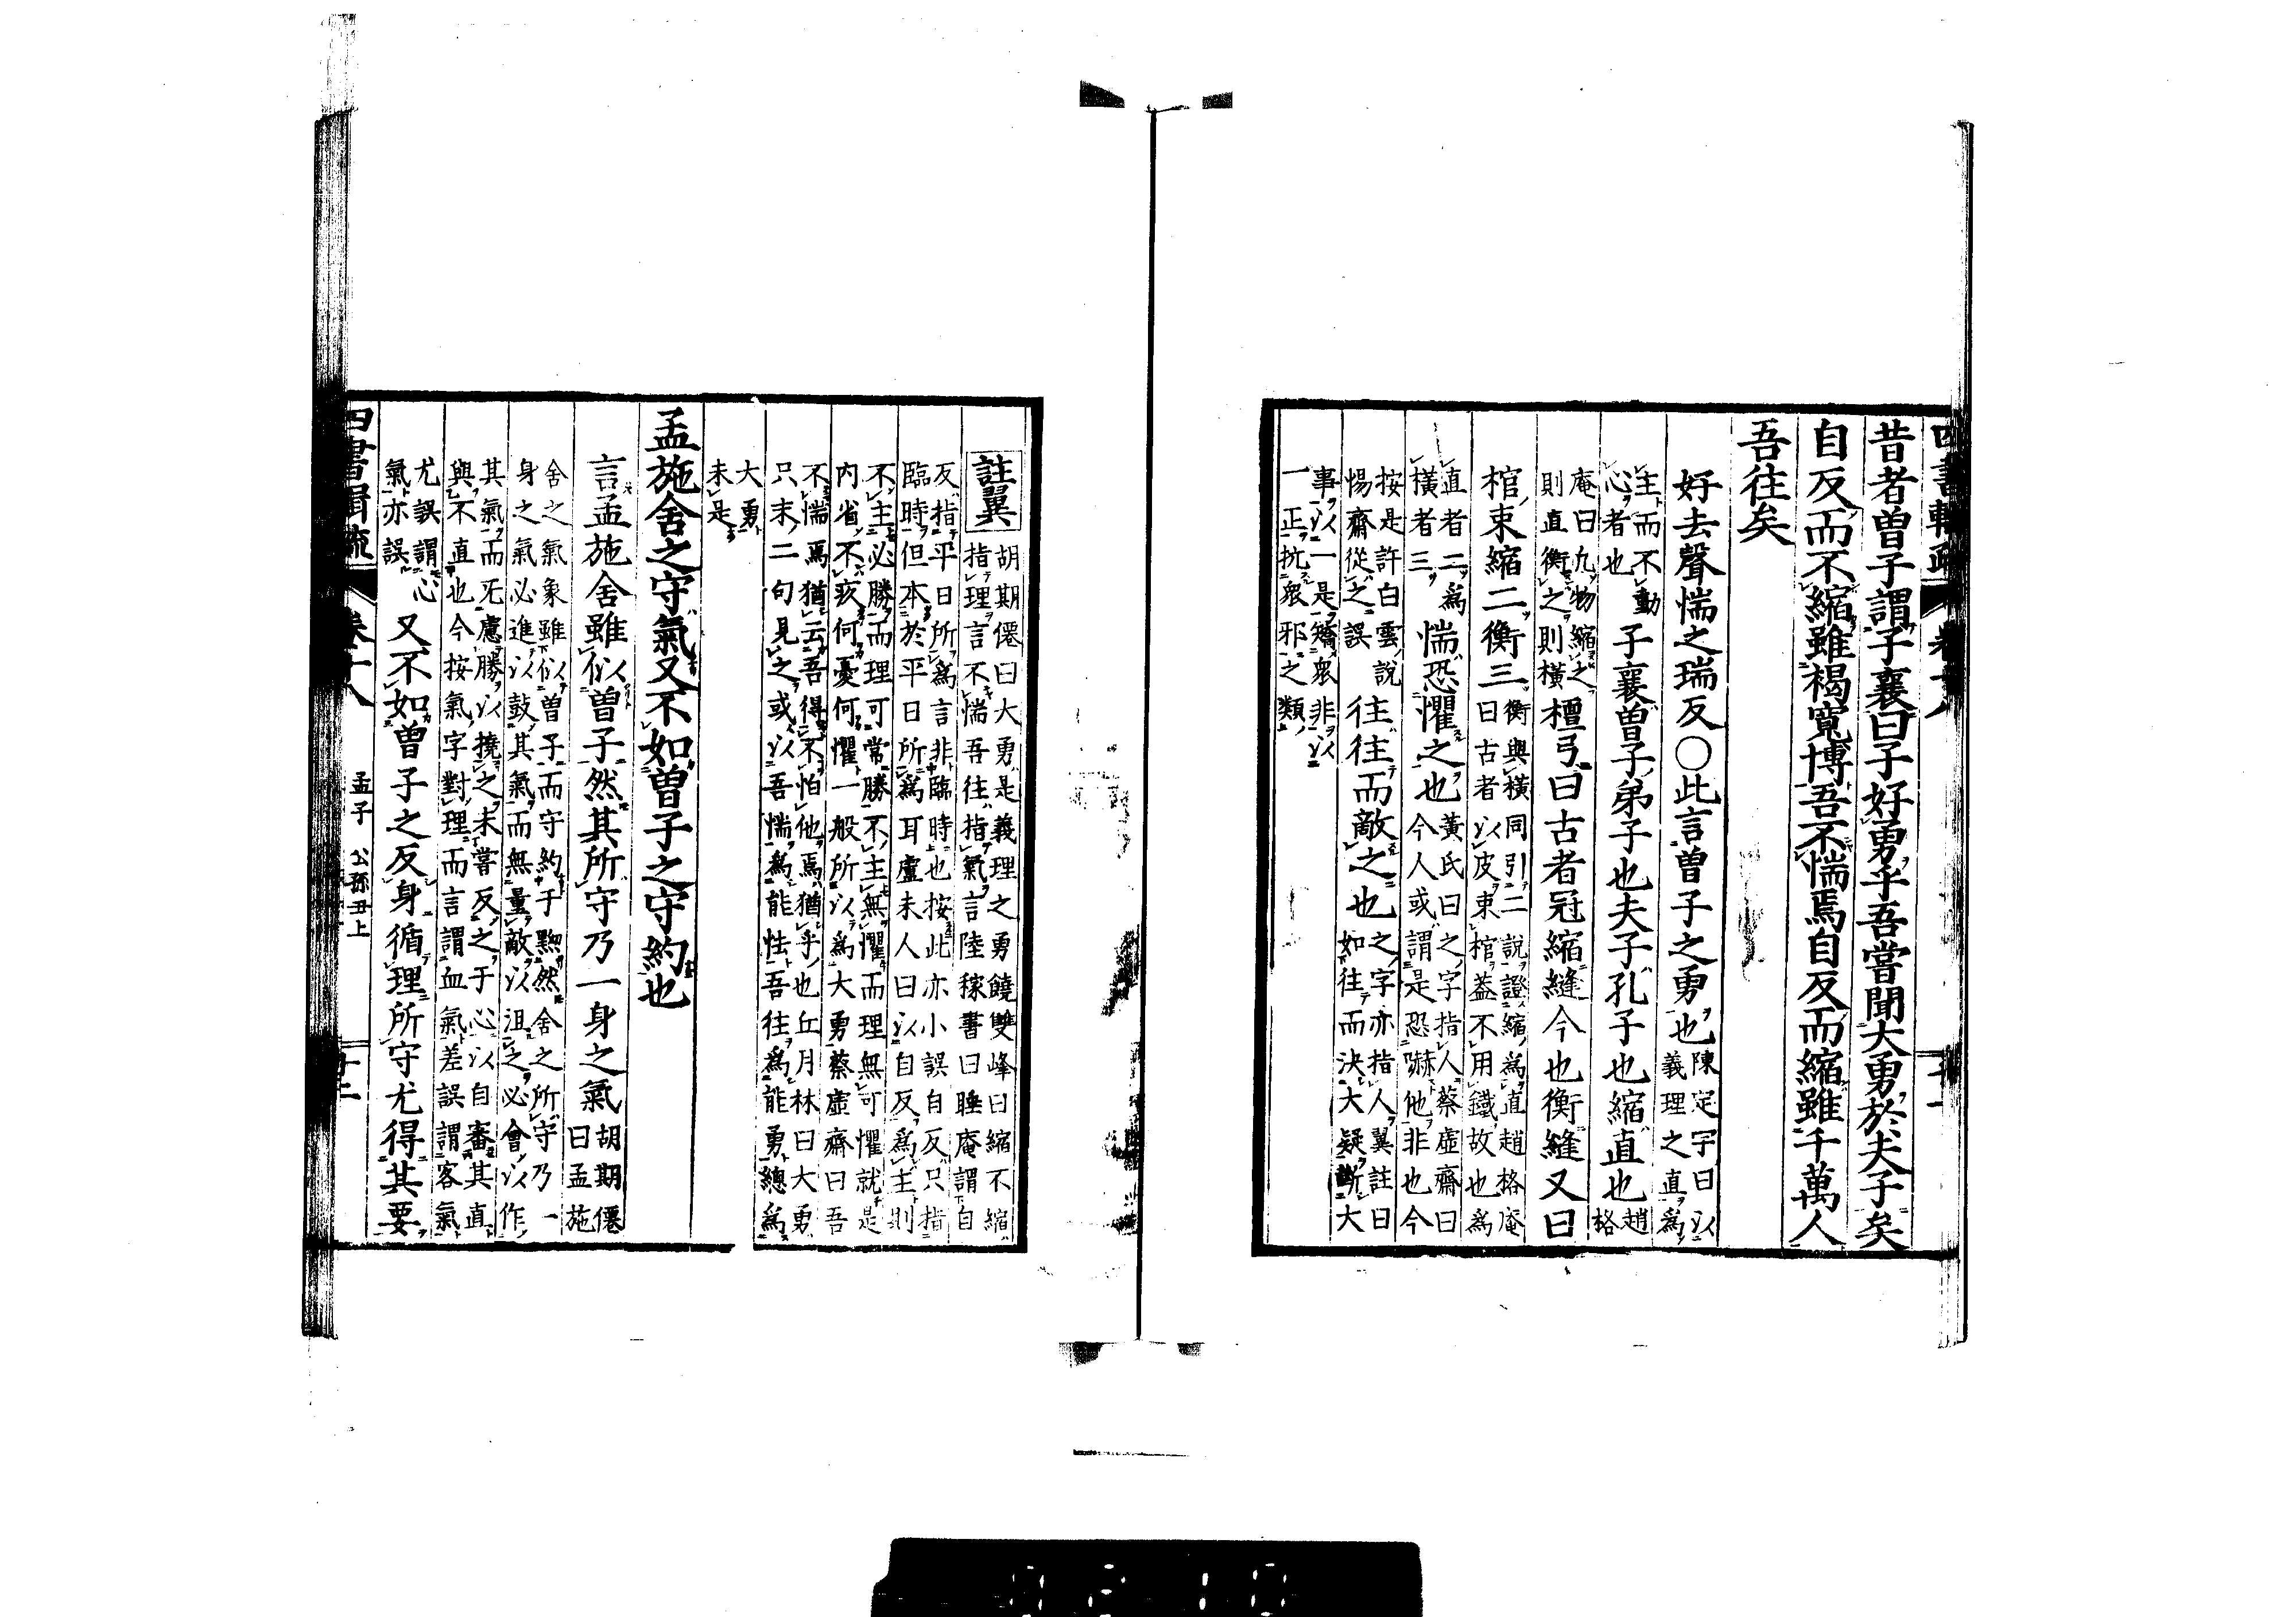 四書輯疏 卷十八 十一
昔者曾子謂子襄曰子好勇乎吾嘗聞大勇於夫子矣
自反而不縮雖褐寬博吾不惴焉自反而縮雖千萬人
吾往矣
好去聲惴之瑞反〇此言曾子之勇也陳定宇曰以
義理之直爲
主而不動
心者也子襄曾子弟子也夫子孔子也縮直也趙
格
庵曰九物縮之
則直衡之則橫檀弓曰古者冠縮縫今也衡縫又曰
棺束縮二衡三衡與橫同引二說證縮爲直趙格庵
曰古者以皮束棺葢不用鐵故也爲
直者二爲
橫者三惴恐懼之也黃氏曰之字指人蔡虛齋曰
今人或謂是恐嚇他非也今
按是許白雲說
惕齋從之誤往往而敵之也之字亦指人翼註曰
如往而決大疑斷大
事以一是矯衆非以
一正抗衆邪之類
註翼胡期僊曰大勇是義理之勇饒雙峰曰縮不縮
指理言不惴吾往指氣言陸稼書曰睡庵謂自
反指平日所爲言非臨時也按此亦小誤自反只指
臨時但本於平日所爲耳盧未人曰以自反爲主則
不主必勝而理可常勝不主無懼而理無可懼就是
内省不疚何憂何懼一般所以爲大勇蔡虛齋曰吾
不惴焉猶云吾得不怕他焉猶乎也丘月林曰大勇
只末二句見之或以吾惴爲能怯吾往爲能勇總爲
大勇
未是
孟施舍之守氣又不如曾子之守約也
言孟施舍雖似曾子然其所守乃一身之氣胡期僊
曰孟施
舍之氣象雖似曾子而守約于黝然舍之所守乃一
身之氣必進以鼓其氣而無量敵以沮之必會以作
其氣而旡慮勝以撓之未嘗反之于心以自審其直
與不直也今按氣字對理而言謂血氣差誤謂客氣
尤誤謂心
氣亦誤又不如曾子之反身循理所守尤得其要
四書輯疏 卷十八 孟子 公孫丑上 十二